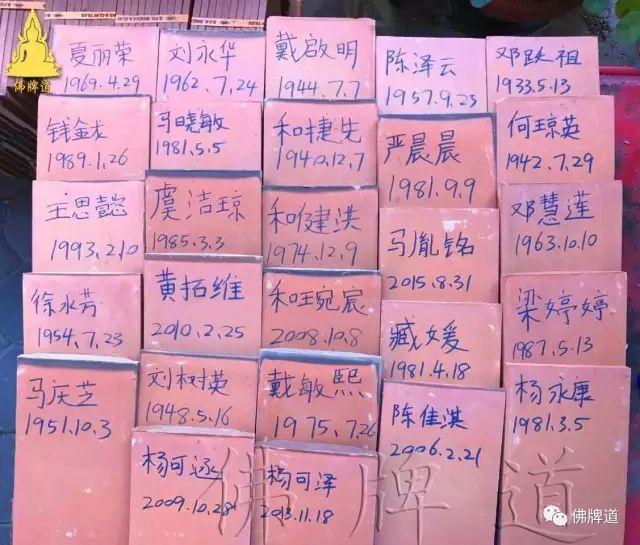 佛牌道
夏丽荣
1969.4.29
刘永华
1962.7.24
戴啟明
1944.7.7
陈泽云
1957.9.23
邓跃祖
1933.5.13
钱金龙
1989.1.26
马晓敏
1981.5.5
和捷先
1940.12.7
严晨晨
1981.9.9
何琼英
1942.7.29
王思懿
1993.2.10
虞洁琼
1985.3.3
和健洪
1974.12.9
马胤铭
2015.8.31
邓慧莲
1963.10.10
徐永芳
1954.7.23
黄拓维
2010.2.25
和旺宛宸
2008.10.8
臧媛
1981.4.18
梁婷婷
1987.5.13
马庆芝
1951.10.3
刘树英
1948.5.16
戴敏熙
1975.7.26
陈佳淇
2006.2.21
杨永康
1981.3.5
杨可
2009.10.28
杨可泽
2013.11.18
佛牌道
佛牌道